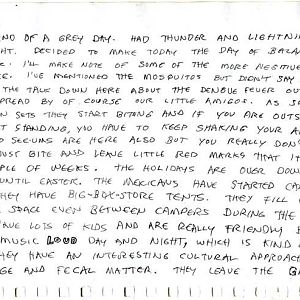 ND OF A GREY DAY. HAD THUNDER AND LIGHTNIN
HT. DECIDED TO MAKE TODAY THE DAY OF BAZA
E. I'LL MAKE NOTE OF SOME OF THE MORE NEGITIVE
E. I'VE MENTIONED THE MOSQUITOS BUT DIDN'T SAY
THE TALK DOWN HERE ABOUT THE DENGUE FEVER OUT
SPREAD BY OF COURSE OUR LITTLE AMIGOS. AS SO
N SETS THEY START BITING AND IF YOU ARE OUTS
T STANDING, YOU HAVE TO KEEP SHAKING YOUR A
O SEE-UMS ARE HERE ALSO BUT YOU REALLY DON'
JUST BITE AND LEAVE LITTLE RED MARKS THAT IT
PLE OF WEEKS. THE HOLIDAYS ARE OVER DOWN
UNTIL EASTER. THE MEXICANS HAVE STARTED CA
THEY HAVE BIG-BOX-STORE TENTS. THEY FILL
SPACE EVEN BETWEEN CAMPERS DURING THE
AVE LOTS OF KIDS AND ARE REALLY FRIENDLY B
MUSIC LOUD DAY AND NIGHT, WHICH IS KIND
THEY HAVE AN INTERESTING CULTURAL APPROAC
GE AND FECAL MATTER. THEY LEAVE THE